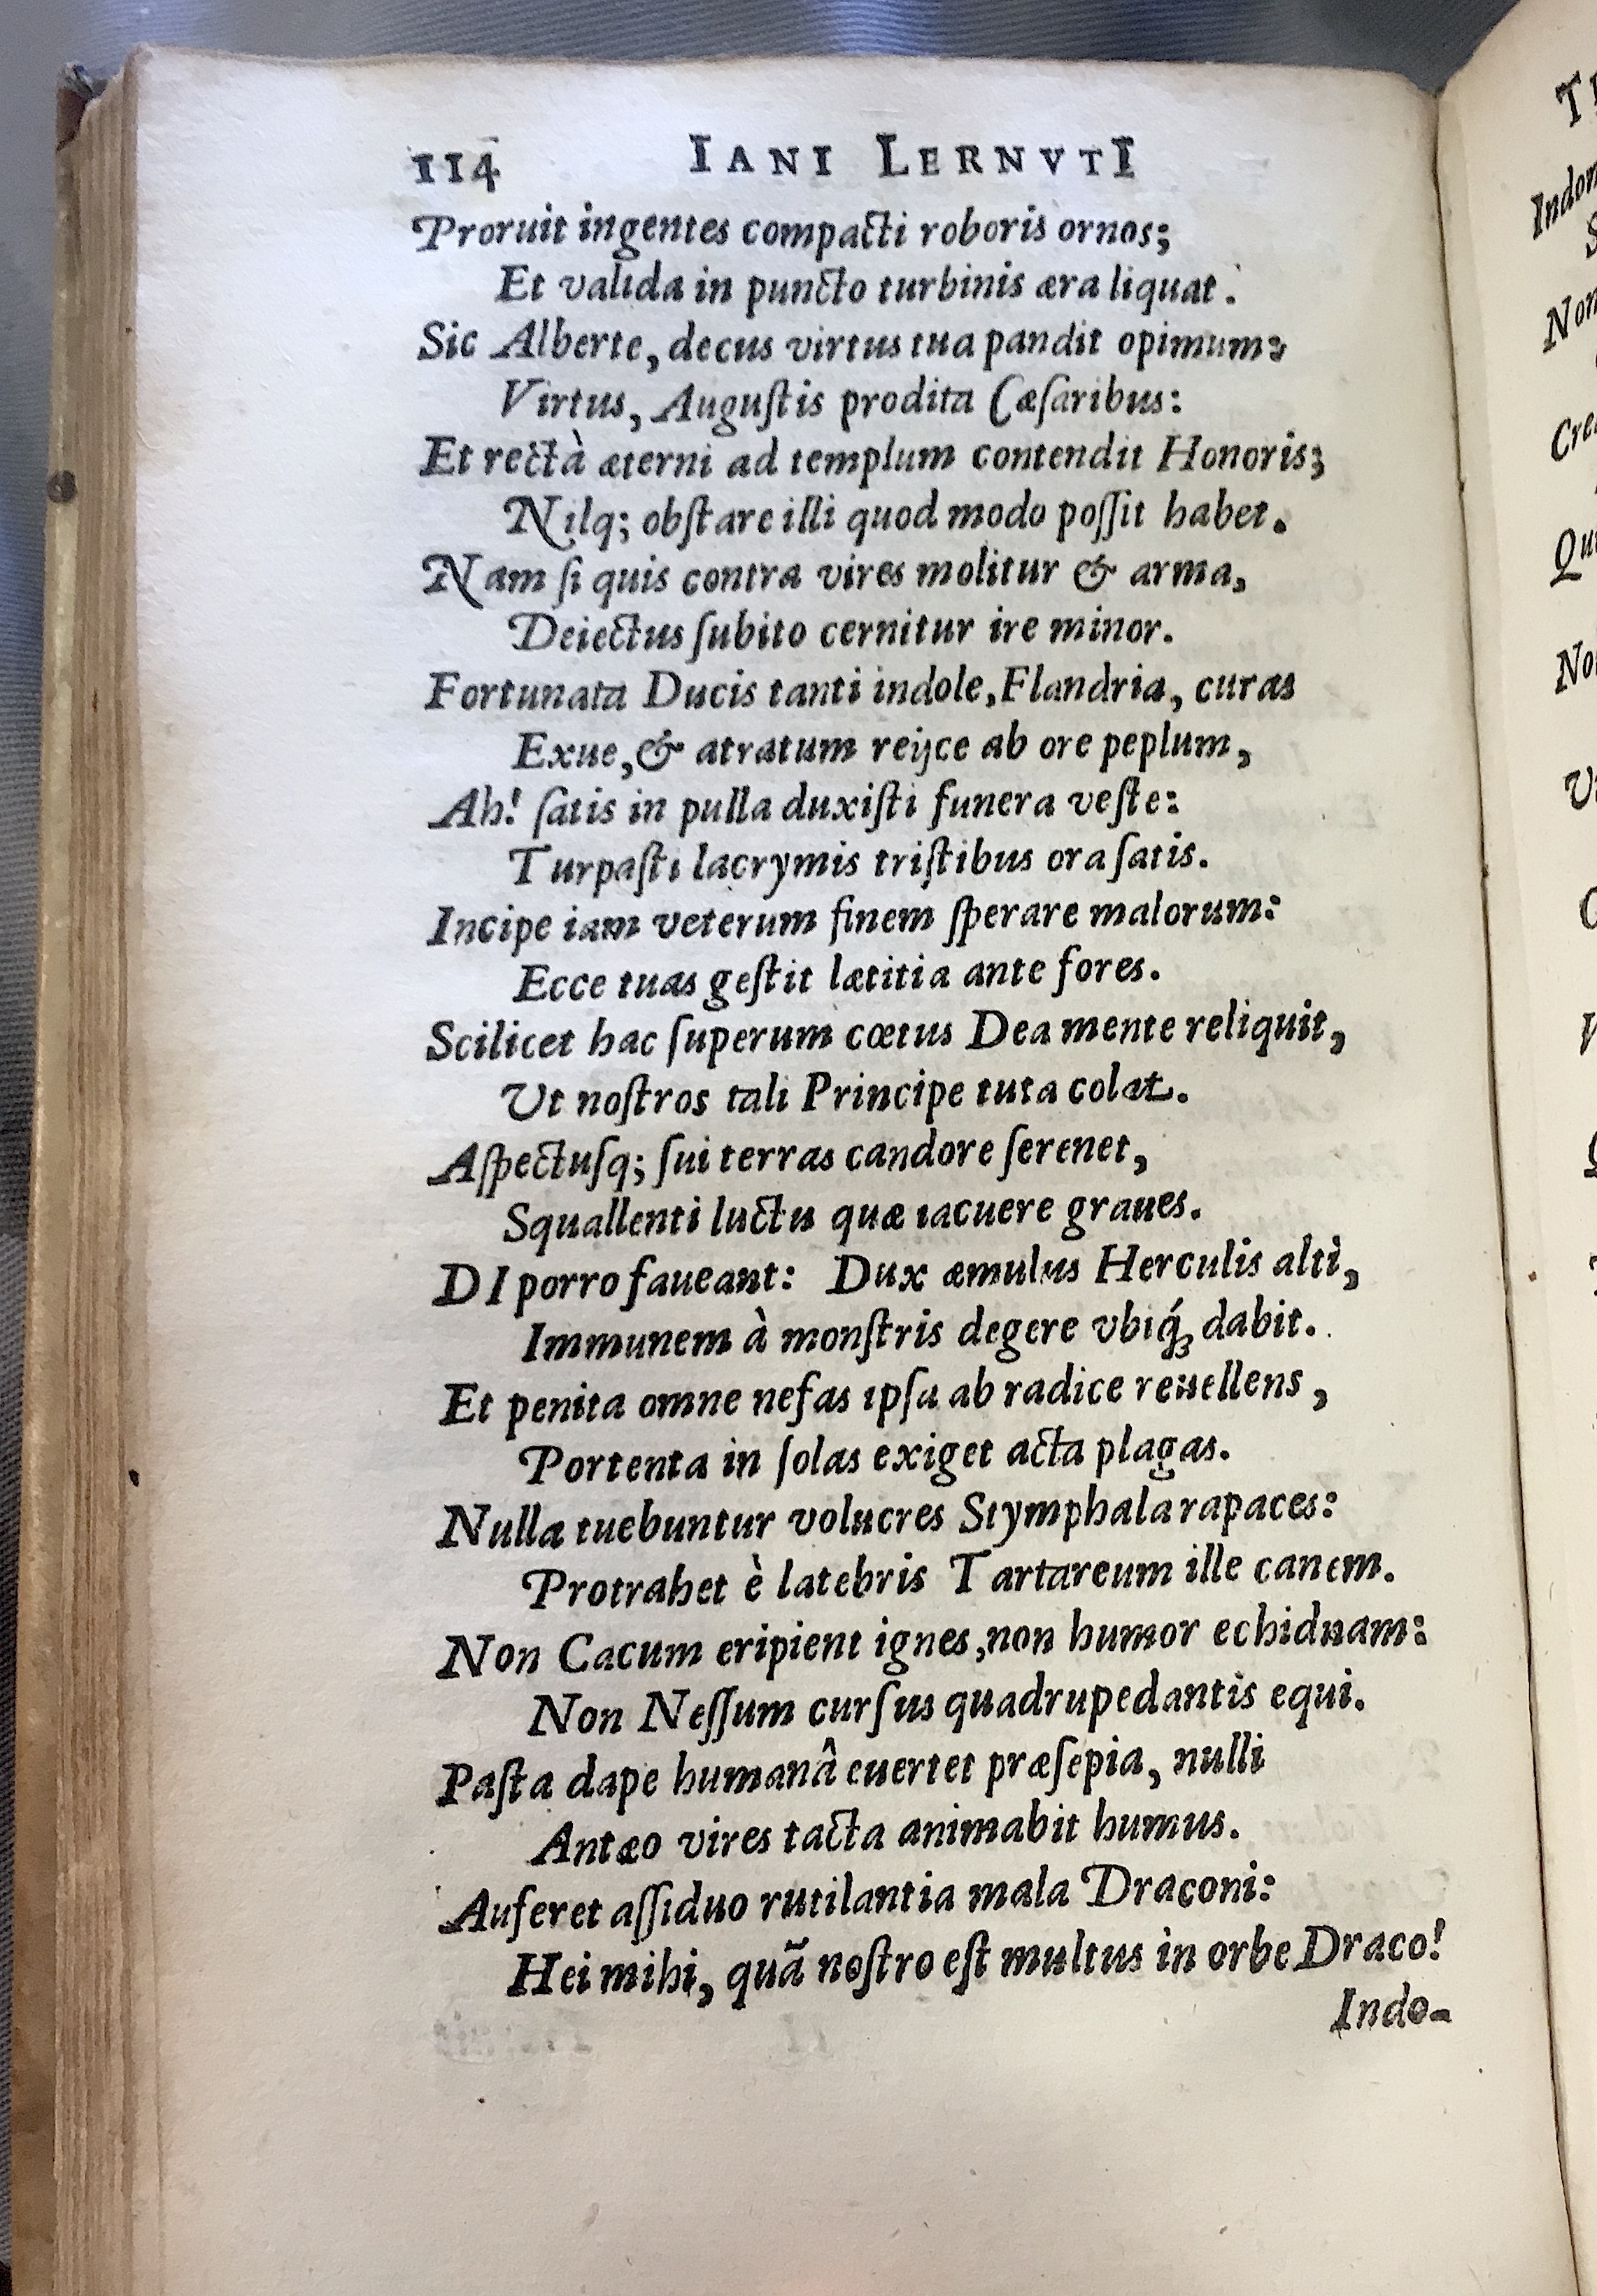 114 IANI LERNVTI
Proruit ingentes compacti roboris ornos;
Et valida in puncto turbinis æra liquat.
Sic Alberte, decus virtus tua pandit opimum:
Virtus, Auguſtis prodita Cæſaribus:
Et rectà æterni ad templum contendit Honoris;
Nilq; obſtare illi quod modo poſſit habet.
Nam ſi quis contra vires molitur & arma,
Deiectus ſubito cernitur ire minor.
Fortunata Ducis tanti indole, Flandria, curas
Exue, & atratum reijce ab ore peplum,
Ah! ſatis in pulla duxiſti funera veſte:
Turpaſti lacrymis triſtibus ora ſatis.
Incipe iam veterum finem ſperare malorum:
Ecce tuas geſtit lætitia ante fores.
Scilicet hac ſuperum cœtus Dea mente reliquit,
Ut noſtros tali Principe tuta colat.
Aſpectuſq; ſui terras candore ſerenet,
Squallenti luctu quæ iacuere graues.
DI porro faueant: Dux æmulus Herculis alti,
Immunem à monſtris degere vbiq́ꝫ dabit.
Et penita omne nefas ipſa ab radice reuellens,
Portenta in ſolas exiget acta plagas.
Nulla tuebuntur volucres Stymphala rapaces:
Protrahet è latebris Tartareum ille canem.
Non Cacum eripient ignes, non humor echidnam:
Non Neſſum curſus quadrupedantis equi.
Paſta dape humanâ euertet præſepia, nulli
Antæo vires tacta animabit humus.
Auferet aſſiduo rutilantia mala Draconi:
Hei mihi, quā noſtro eſt multus in orbe Draco!
Indo-
Indo
Non
Cre
Qu
No